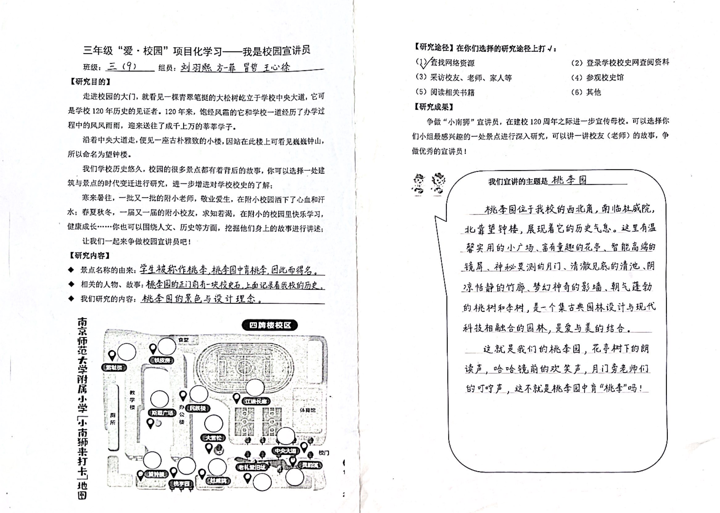 三年级“爱·校园”项目化学习——我是校园宣讲员
班级：三（9） 组员：刘羽熙 方一菲 王心
【研究目的】
走进校园的大门，就看见一棵青翠笔挺的大松树屹立于学校中央大道，它可
是学校120年历史的见证者。120年来，饱经风霜的它和学校一道经历了办学过
程中的风风雨雨，迎来送往了成千上万的莘莘学子。
沿着中央大道走，便见一座古朴雅致的小楼，因站在此楼上可看见巍巍钟山，
所以命名为望钟楼。
我们学校历史悠久，校园的很多景点都有着背后的故事，你可以选择一处建
筑与景点的时代变迁进行研究，进一步增进对学校校史的了解；
寒来暑往，一批又一批的附小老师，敬业爱生，在附小校园洒下了心血和汗
水；春夏秋冬，一届又一届的附小校友，求知若渴，在附小的校园里快乐学习，
健康成长……你也可以围绕人文、历史等方面，挖掘他们身上的故事进行讲述；
让我们一起来争做校园宣讲员吧！
【研究内容】
◆ 景点名称的由来：学生被称作桃李，桃李园中育桃李，因此而得名。
◆ 相关的人物、故事：桃李园的正门前有一块校史石，上面记录着我校的历史。
◆ 我们研究的内容：桃李园的景色与设计理念。
南京师范大学附属小学「小南狮来打卡」地图
四牌楼校区
食堂
教学楼
办公楼
厕所
体育馆
校门
中央大道
【研究途径】在你们选择的研究途径上打√：
（1）查找网络资源 （2）登录学校校史网查阅资料
（3）采访校友、老师、家人等 （4）参观校史馆
（5）阅读相关书籍 （6）其他
【研究成果】
争做“小南狮”宣讲员，在建校120周年之际进一步宣传母校。可以选择你
们小组最感兴趣的一处景点进行深入研究，可以讲一讲校友（老师）的故事，争
做优秀的宣讲员！
我们宣讲的主题是 桃李园
桃李园位于我校的西北角，南临杜威院，
北靠望钟楼，展现着它的历史气息。这里有温
馨实用的小广场、富有童趣的花亭、智能高端的
镜屏、神秘灵测的月门、清澈见底的清池、阴
凉恬静的竹廊、梦幻神奇的影墙、朝气蓬勃
的桃树和李树，是一个集古典园林设计与现代
科技相融合的园林，是爱与美的结合。
这就是我们的桃李园，花亭树下的朗
读声，哈哈镜前的欢笑声，月门旁老师们
的叮咛声，这不就是桃李园中育“桃李”吗！